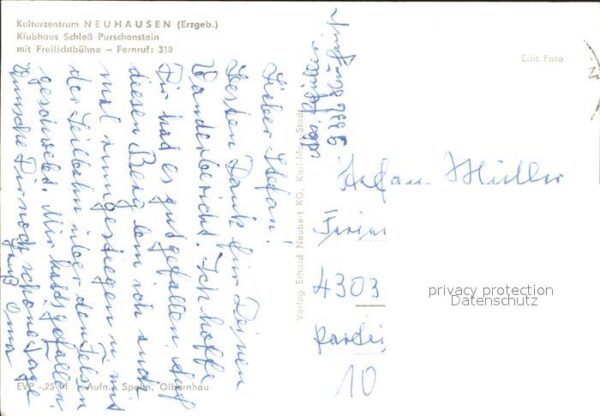 Kulturzentrum NEUHAUSEN (Erzgeb.)
Klubhaus Schloß Purschenstein
mit Freilichtbühne — Fernruf: 310
Echt Foto
Lieber Stefan!
Besten Dank für Deinen
Wanderbericht. Ich hoffe
Dir hat es gut gefallen. Auf
diesen Berg bin ich auch
mal rumgestiegen u. mit
der Seilbahn über den Felsen
geschwebt. Mir hat's gefallen.
Wünsche Dir noch schöne Tage
Gruß Oma
Verlag Erhard Neubert KG, Karl-Marx-Stadt
Stefan Müller
4303
10
privacy protection
Datenschutz
EVP -,25 M Aufn.: Spahn, Olbernhau